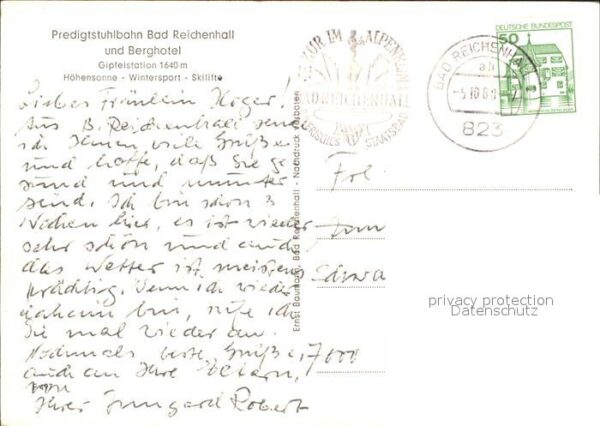 Predigtstuhlbahn Bad Reichenhall
und Berghotel
Gipfelstation 1640 m
Höhensonne - Wintersport - Skilifte
Liebes Fräulein Hoger!
Aus B. Reichenhall sende
ich Ihnen viele Grüße
und hoffe, daß Sie ge
sund und munter
sind. Ich bin schon 3
Wochen hier, es ist wieder
sehr schön und auch
das Wetter ist meistens
prächtig. Wenn ich wieder
daheim bin, rufe ich
Sie mal wieder an.
Nochmals beste Grüße,
auch an Ihre Eltern,
von
Ihrer Irmgard Robert
Ernst Baumann, Bad Reichenhall - Nachdruck verboten
KUR IM ALPENKLIMA
BAD REICHENHALL
BAYERISCHES STAATSBAD
BAD REICHENHALL
823
DEUTSCHE BUNDESPOST
50
Frl.
7000
privacy protection
Datenschutz